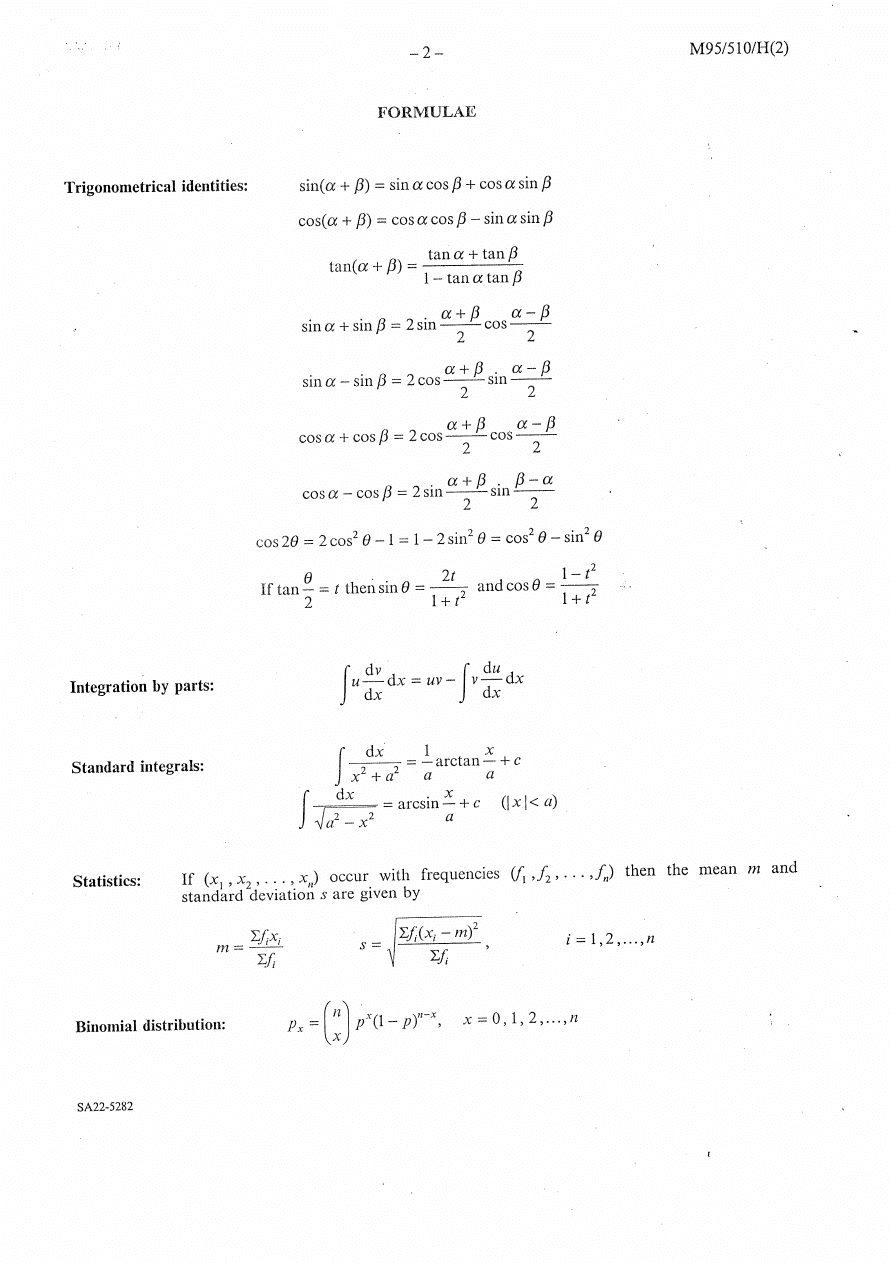 – 2 –
M95/510/H(2)
FORMULAE
Trigonometrical identities: sin(α + β) = sin α cos β + cos α sin β
cos(α + β) = cos α cos β – sin α sin β
tan(α + β) = (tan α + tan β)/(1 – tan α tan β)
sin α + sin β = 2 sin (α + β)/2 cos (α – β)/2
sin α – sin β = 2 cos (α + β)/2 sin (α – β)/2
cos α + cos β = 2 cos (α + β)/2 cos (α – β)/2
cos α – cos β = 2 sin (α + β)/2 sin (β – α)/2
cos 2θ = 2 cos² θ – 1 = 1 – 2 sin² θ = cos² θ – sin² θ
If tan θ/2 = t then sin θ = 2t/(1 + t²) and cos θ = (1 – t²)/(1 + t²)
Integration by parts: ∫ u dv/dx dx = uv – ∫ v du/dx dx
Standard integrals: ∫ dx/(x² + a²) = 1/a arctan x/a + c
∫ dx/√(a² – x²) = arcsin x/a + c (|x| < a)
Statistics: If (x₁, x₂, . . . , xₙ) occur with frequencies (f₁, f₂, . . . , fₙ) then the mean m and
standard deviation s are given by
m = Σfᵢxᵢ/Σfᵢ s = √(Σfᵢ(xᵢ – m)²/Σfᵢ), i = 1, 2, ..., n
Binomial distribution: pₓ = (n x) pˣ(1 – p)ⁿ⁻ˣ, x = 0, 1, 2, ..., n
SA22-5282